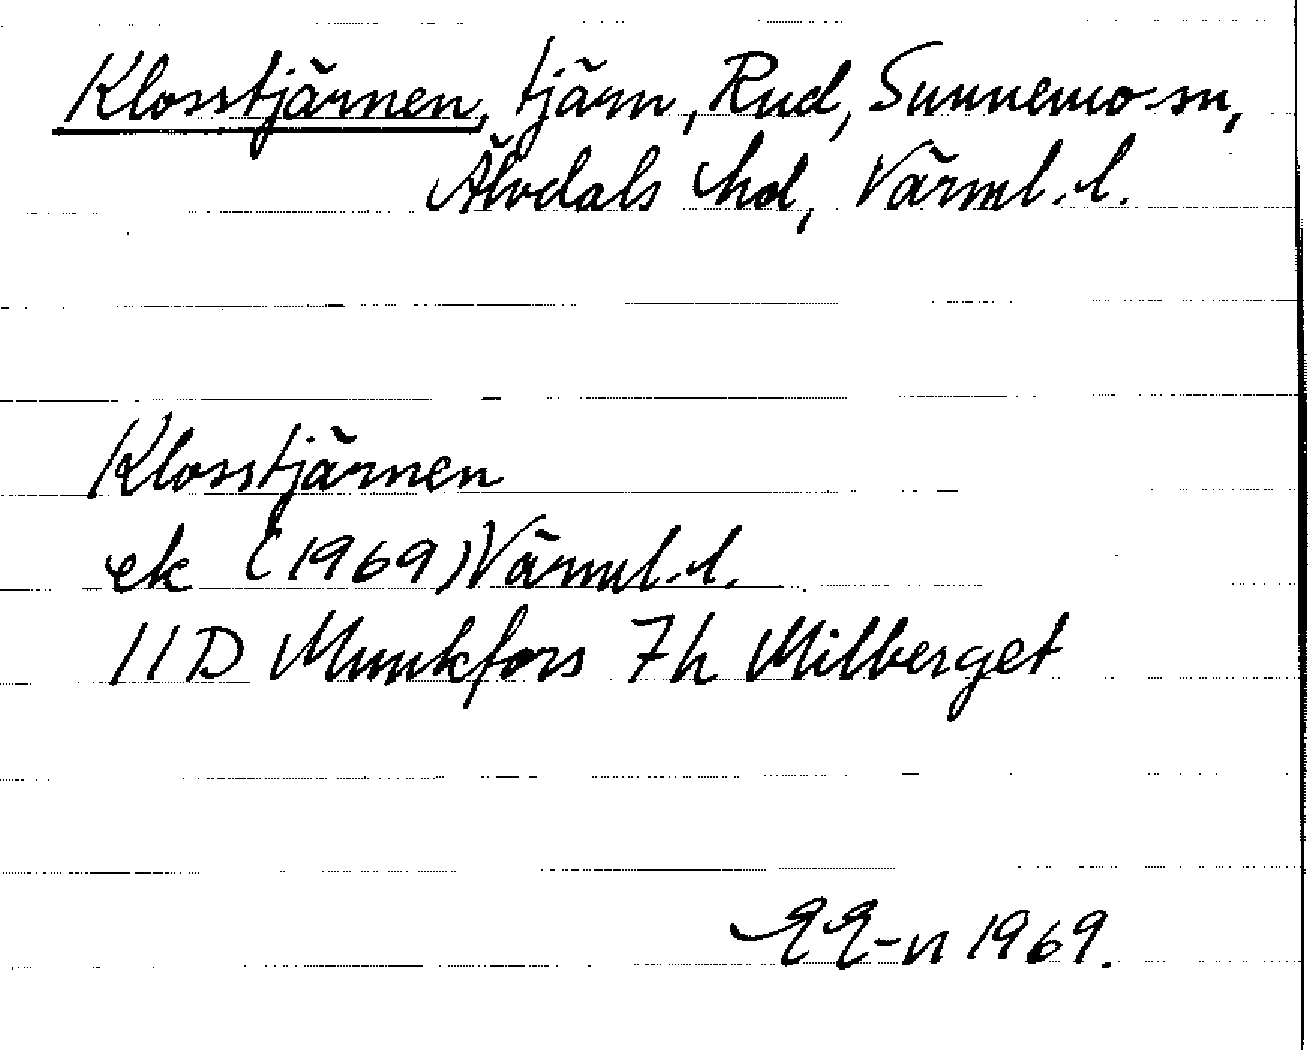 Klosstjärnen, tjärn, Rud, Sunnemo sn,
Älvdals hd, Värml. l.
Klosstjärnen
ek (1969) Värml. l.
11D Munkfors 7h Milberget
EE-n 1969.